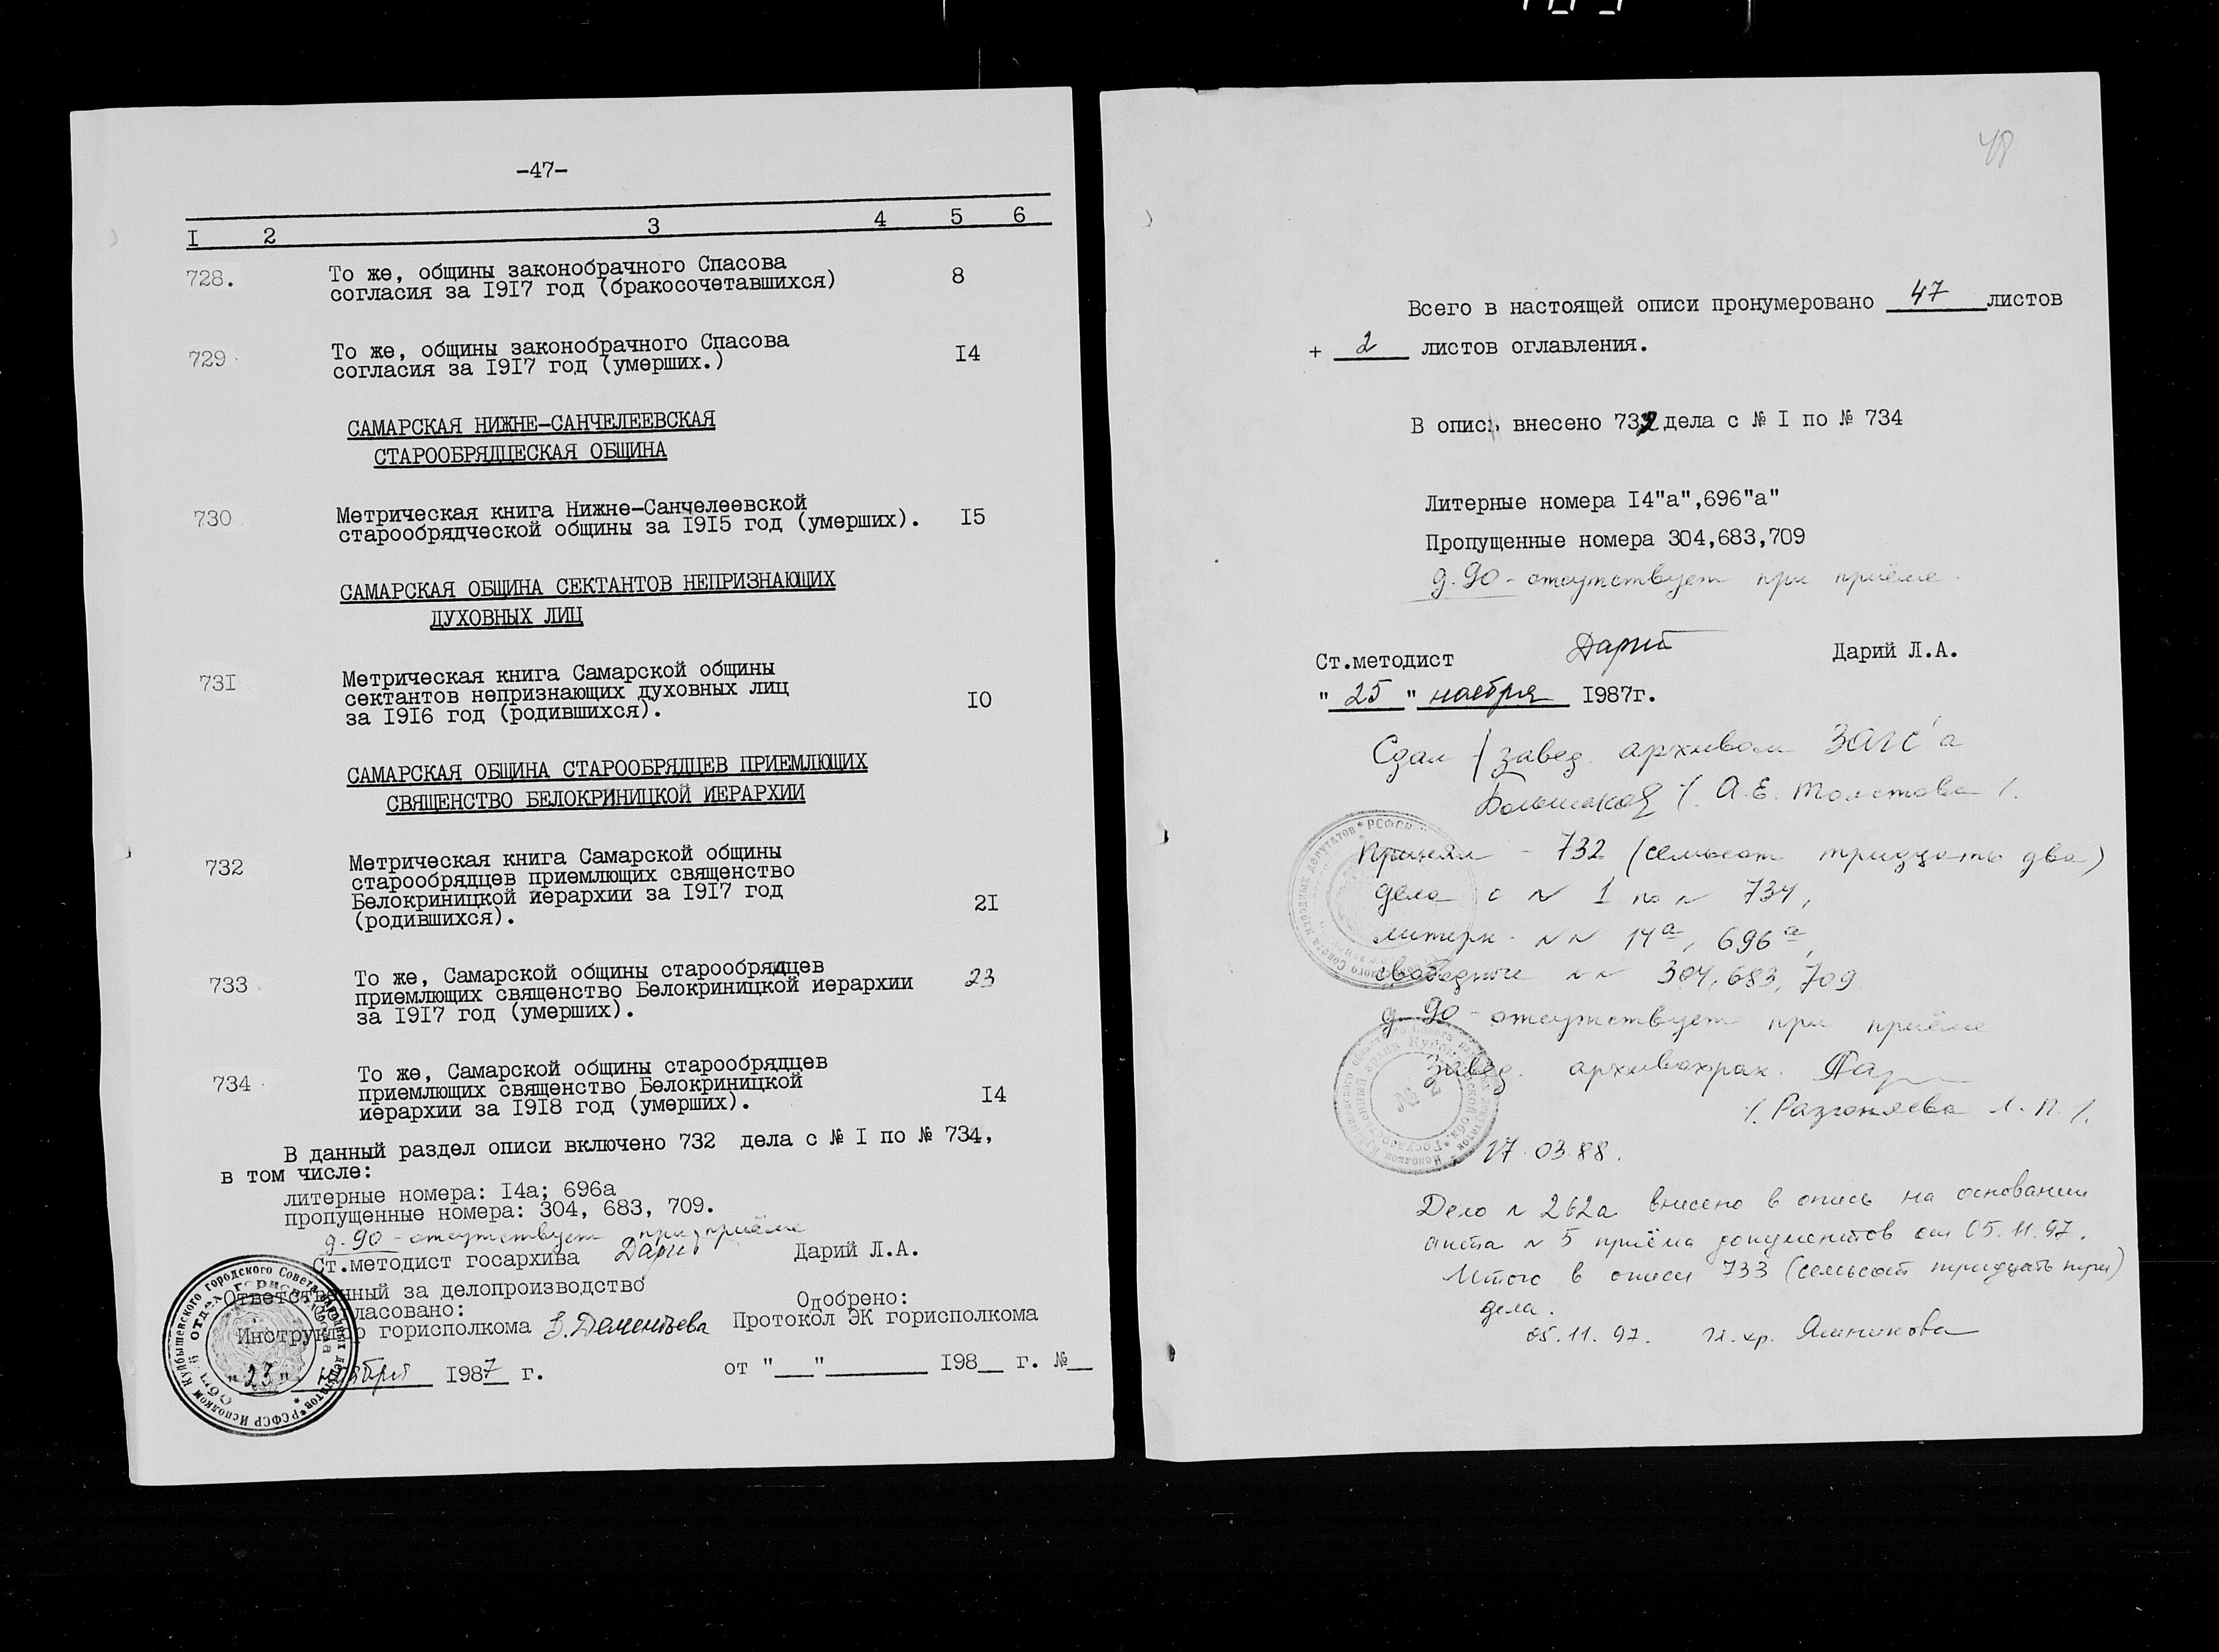 -47-
I 2 3 4 5 6
728. То же, общины законобрачного Спасова
согласия за 1917 год (бракосочетавшихся) 8
729 То же, общины законобрачного Спасова
согласия за 1917 год (умерших.) 14
САМАРСКАЯ НИЖНЕ-САНЧЕЛЕЕВСКАЯ
СТАРООБРЯДЦЕСКАЯ ОБЩИНА
730 Метрическая книга Нижне-Санчелеевской
старообрядческой общины за 1915 год (умерших). 15
САМАРСКАЯ ОБЩИНА СЕКТАНТОВ НЕПРИЗНАЮЩИХ
ДУХОВНЫХ ЛИЦ
731 Метрическая книга Самарской общины
сектантов непризнающих духовных лиц
за 1916 год (родившихся). 10
САМАРСКАЯ ОБЩИНА СТАРООБРЯДЦЕВ ПРИЕМЛЮЩИХ
СВЯЩЕНСТВО БЕЛОКРИНИЦКОЙ ИЕРАРХИИ
732 Метрическая книга Самарской общины
старообрядцев приемлющих священство
Белокриницкой иерархии за 1917 год
(родившихся). 21
733 То же, Самарской общины старообрядцев
приемлющих священство Белокриницкой иерархии
за 1917 год (умерших). 23
734 То же, Самарской общины старообрядцев
приемлющих священство Белокриницкой
иерархии за 1918 год (умерших). 14
В данный раздел описи включено 732 дела с № I по № 734,
в том числе:
литерные номера: 14а; 696а
пропущенные номера: 304, 683, 709.
д. 90 - отсутствует при приёме
Ст.методист госархива Дарий Дарий Л.А.
Ответственный за делопроизводство
Согласовано: Одобрено:
Инструктор горисполкома В. Дементьева Протокол ЭК горисполкома
"23" 1987 г. от "__" ____ 198__ г. №__
48
Всего в настоящей описи пронумеровано 47 листов
+ 2 листов оглавления.
В опись внесено 732 дела с № I по № 734
Литерные номера 14"а",696"а"
Пропущенные номера 304,683,709
д. 90 - отсутствует при приёме
Ст.методист Дарий Дарий Л.А.
"25" ноября 1987г.
Сдал / завед. архивом ЗАГС'а
/ А.Е. Толстова /.
Принял - 732 (семьсот тридцать два)
дела с № 1 по № 734,
литерн. №№ 14а, 696а,
свободные №№ 304, 683, 709
д. 90 - отсутствует при приёме
Завед. архивохран.
/. Разгоняева Л. П. /.
17.03.88.
Дело № 262а внесено в опись на основании
акта № 5 приёма документов от 05.11.97.
Итого в описи 733 (семьсот тридцать три)
дела.
05.11.97. гл. хр. Ямникова